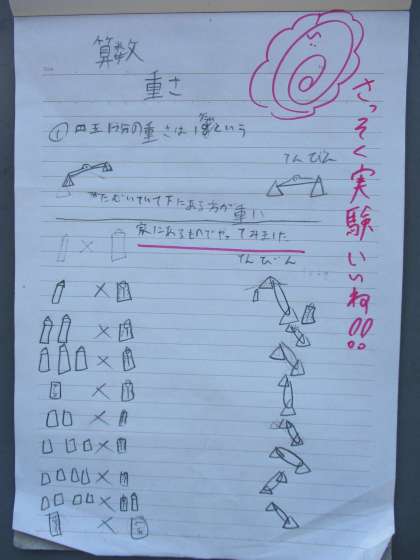 算数
重さ
① 円玉1コ分の重さは1gという
てんびん
かたむいていて下にある方が重い
家にあるものでやってみました
てんびん
さっそく実験いいね!!